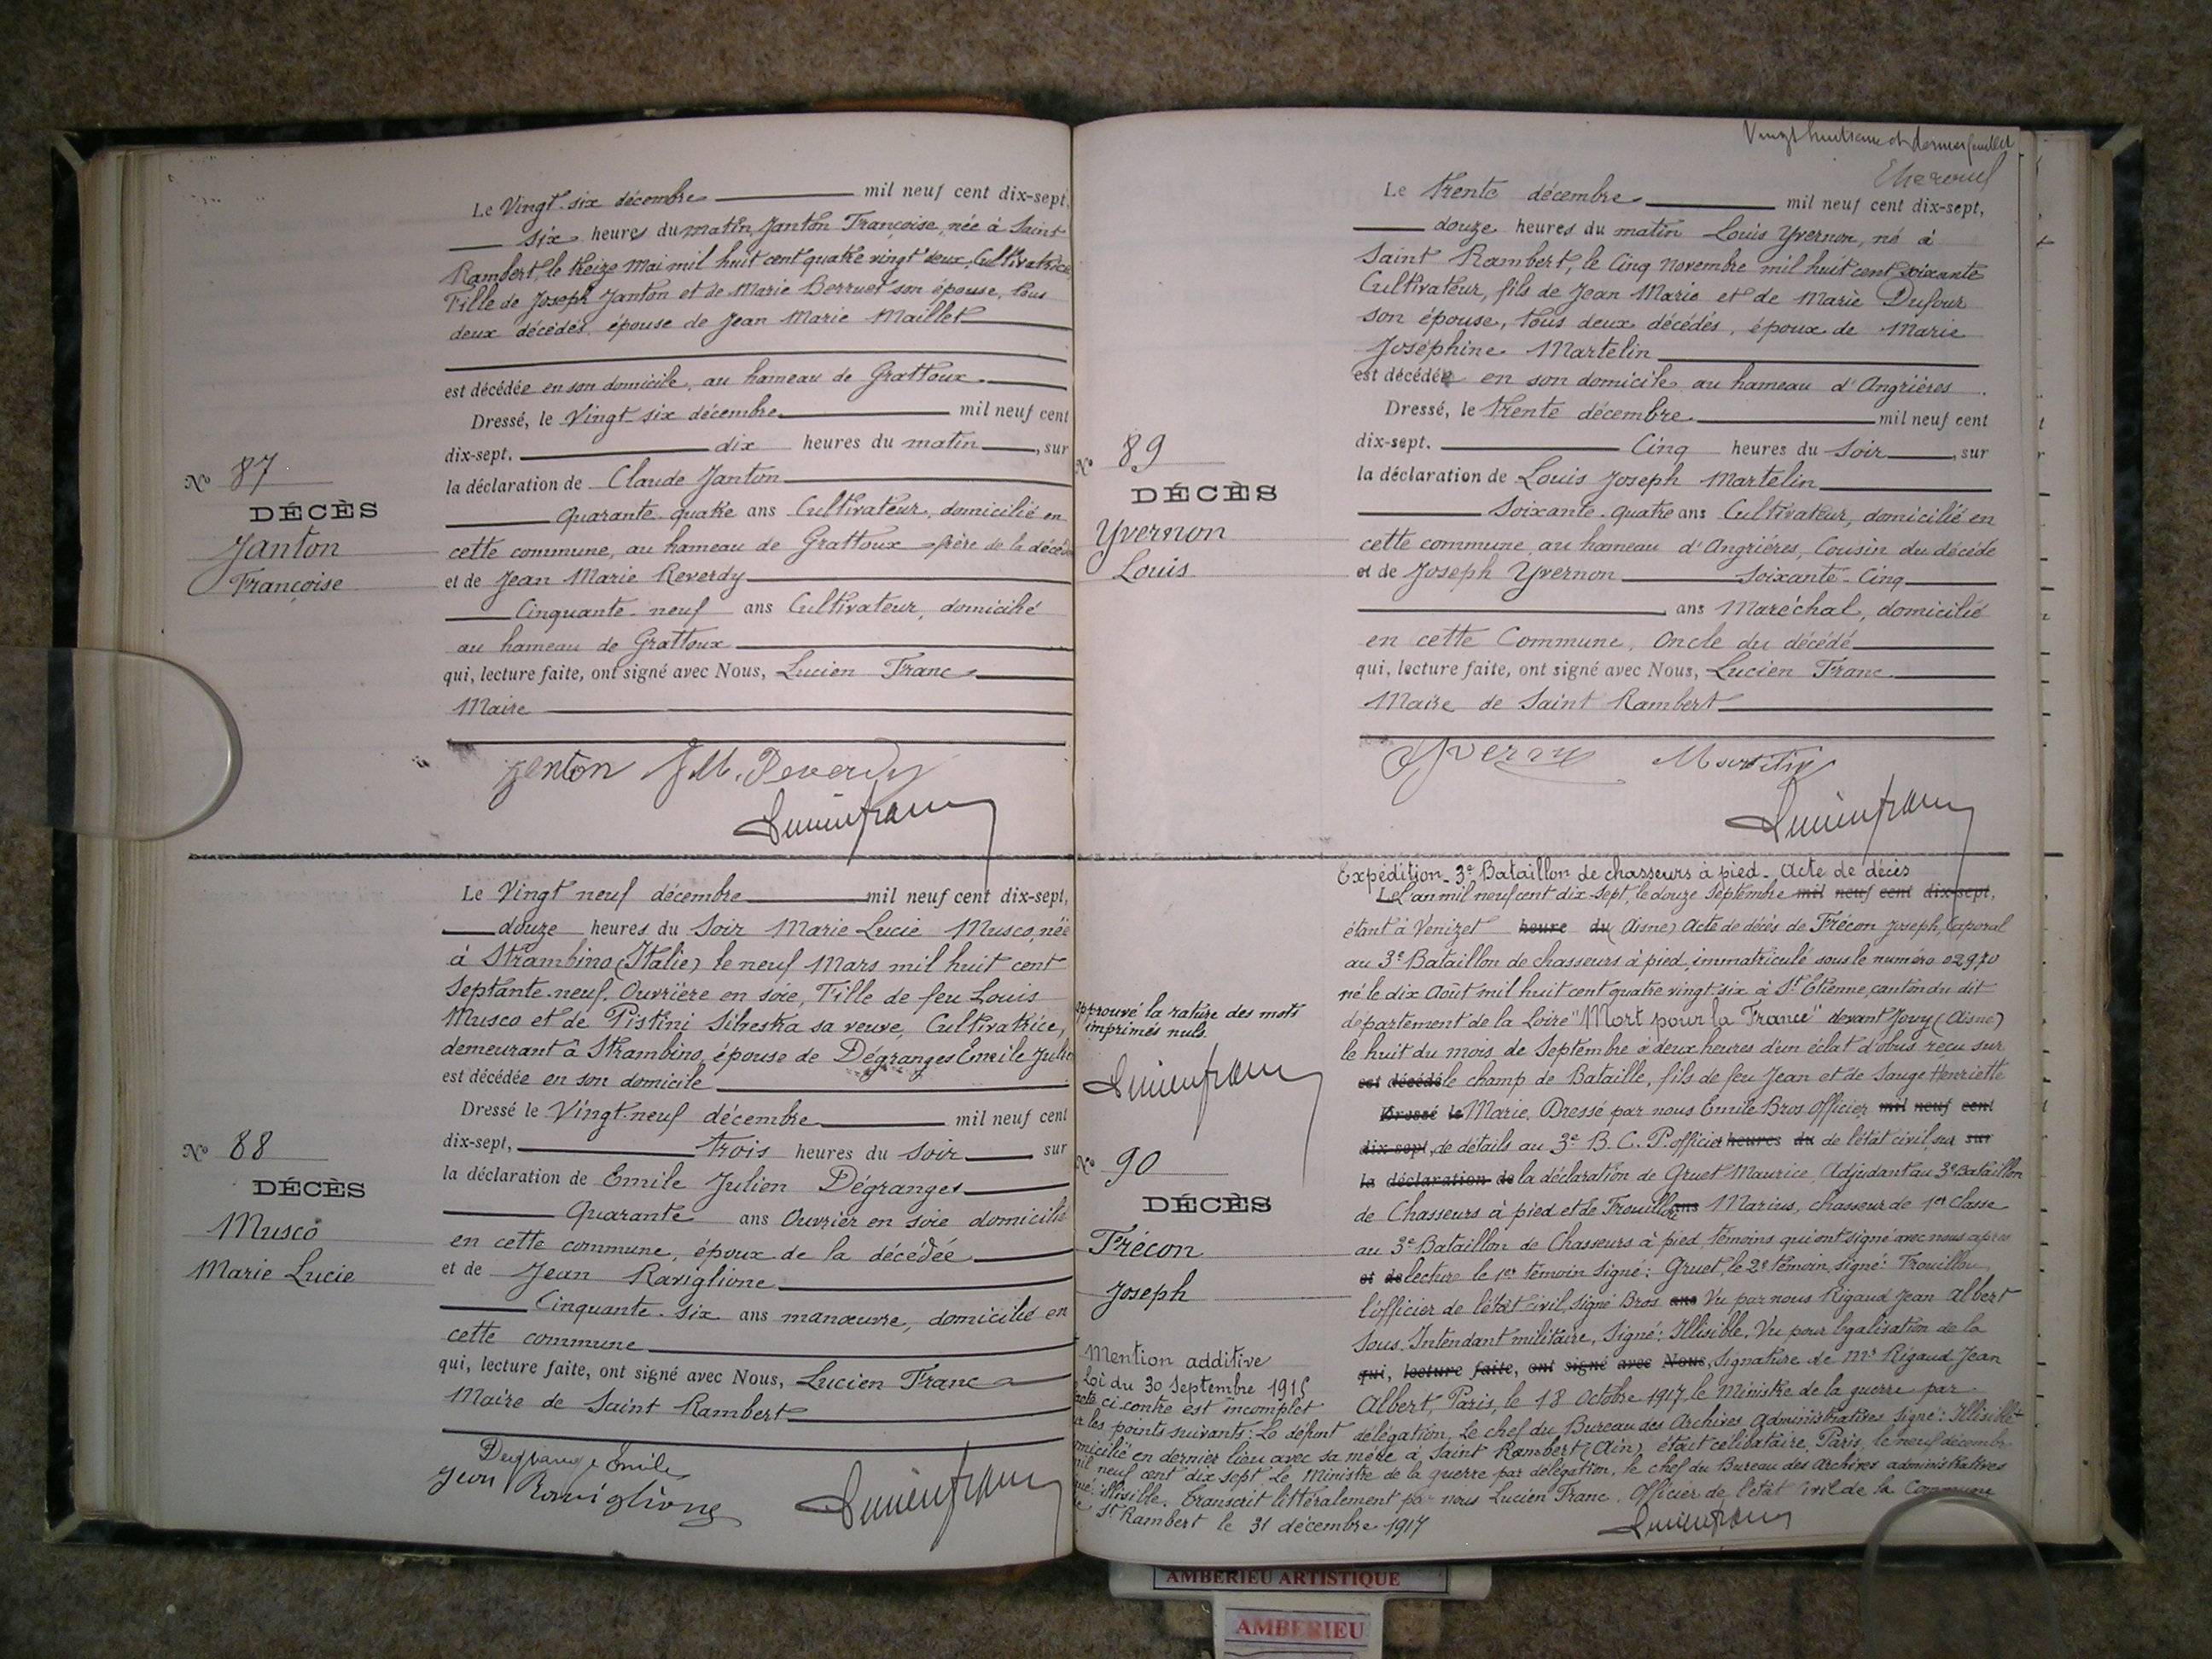 Le Vingt-six décembre mil neuf cent dix-sept,
six heures du matin, Janton Françoise, née à Saint
Rambert, le treize Mai mil huit cent quatre vingt deux, Cultivatrice,
Fille de Joseph Janton et de Marie Berruet son épouse, tous
deux décédés, épouse de Jean Marie Maillet
est décédée en son domicile, au hameau de Grattoux.
Dressé, le Vingt-six décembre mil neuf cent
dix-sept, dix heures du matin, sur
la déclaration de Claude Janton
Quarante-quatre ans Cultivateur, domicilié en
cette commune, au hameau de Grattoux frère de la
et de Jean Marie Reverdy
Cinquante-neuf ans Cultivateur, domicilié
au hameau de Grattoux
qui, lecture faite, ont signé avec Nous, Lucien Franc
Maire
No 87
DÉCÈS
Janton
Françoise
Janton J M. Reverdy
Lucien franc
Le Vingt neuf décembre mil neuf cent dix-sept,
douze heures du Soir Marie Lucie Musco, née
à Strambino (Italie) le neuf Mars mil huit cent
Septante-neuf, Ouvrière en soie, Fille de feu Louis
Musco et de Pistini Silvestra sa veuve, Cultivatrice,
demeurant à Strambino, épouse de Dégranges Emile
est décédée en son domicile
Dressé le Vingt-neuf décembre mil neuf cent
dix-sept, trois heures du Soir sur
la déclaration de Emile Julien Dégranges
Quarante ans Ouvrier en soie domicilié
en cette commune, époux de la décédée
et de Jean Raviglione
Cinquante-six ans manœuvre, domicilié en
cette commune
qui, lecture faite, ont signé avec Nous, Lucien Franc
Maire de Saint Rambert
No 88
DÉCÈS
Musco
Marie Lucie
Degrange Emile
Jean Raviglione
Lucien franc
Vingt huitième et dernier feuillet
Le trente décembre mil neuf cent dix-sept,
douze heures du matin Louis Yvernon, né à
Saint Rambert, le Cinq Novembre mil huit cent soixante
Cultivateur, fils de Jean Marie et de Marie Dufour
son épouse, tous deux décédés, époux de Marie
Joséphine Martelin
est décédé en son domicile au hameau d'Angrières.
Dressé, le trente décembre mil neuf cent
dix-sept. Cinq heures du Soir, sur
la déclaration de Louis Joseph Martelin
Soixante-quatre ans Cultivateur, domicilié en
cette commune, au hameau d'Angrières, Cousin du décédé
et de Joseph Yvernon Soixante-Cinq
ans Maréchal, domicilié
en cette Commune, Oncle du décédé
qui, lecture faite, ont signé avec Nous, Lucien Franc
Maire de Saint Rambert
No 89
DÉCÈS
Yvernon
Louis
Lucien franc
Expédition. 3e Bataillon de chasseurs à pied. Acte de décès
Le L'an mil neuf cent dix-sept, le douze Septembre mil neuf cent dix-sept,
étant à Venizel heure du (Aisne) Acte de décès de Frécon Joseph, Caporal
au 3e Bataillon de chasseurs à pied, immatriculé sous le numéro 02970
né le dix Août mil huit cent quatre vingt-six à St Etienne, canton du dit
département de la Loire "Mort pour la France" devant Jouy (Aisne)
le huit du mois de Septembre à deux heures d'un éclat d'obus reçu sur
est décédé le champ de Bataille, fils de feu Jean et de Sauge Henriette
Dressé le Marie. Dressé par nous Emile Bros Officier mil neuf cent
dix-sept, de détails au 3e B.C.P. officier heures du de l'état civil, sur sur
la déclaration de la déclaration de Gruet Maurice, Adjudant au 3e Bataillon
de Chasseurs à pied et de Trouillou ans Marius, chasseur de 1er Classe
au 3e Bataillon de Chasseurs à pied, témoins qui ont signé avec nous après
et de lecture le 1er témoin signé: Gruet, le 2e témoin, signé: Trouillou,
l'officier de l'état civil, signé Bros ans Vu par nous Rigaud Jean Albert
Sous-Intendant militaire, Signé: Illisible, Vu pour légalisation de la
qui, lecture faite, ont signé avec Nous, signature de Mr Rigaud Jean
Albert, Paris, le 18 Octobre 1917, le Ministre de la guerre par
délégation, Le chef du Bureau des Archives Administratives Signé: Illisible
approuvé la rature des mots
imprimés nuls.
Lucien franc
No 90
DÉCÈS
Frécon
Joseph
Mention additive
Loi du 30 Septembre 1915
acte ci-contre est incomplet
les points suivants: Le défunt
domicilié en dernier lieu avec sa mère à Saint Rambert (Ain) était célibataire, Paris, le neuf décembre
mil neuf cent dix sept Le Ministre de la guerre par délégation, le chef du Bureau des Archives administratives
illisible. Transcrit littéralement par nous Lucien Franc, Officier de l'état civil de la Commune
St Rambert le 31 décembre 1917
Lucien franc
AMBERIEU ARTISTIQUE
AMBERIEU